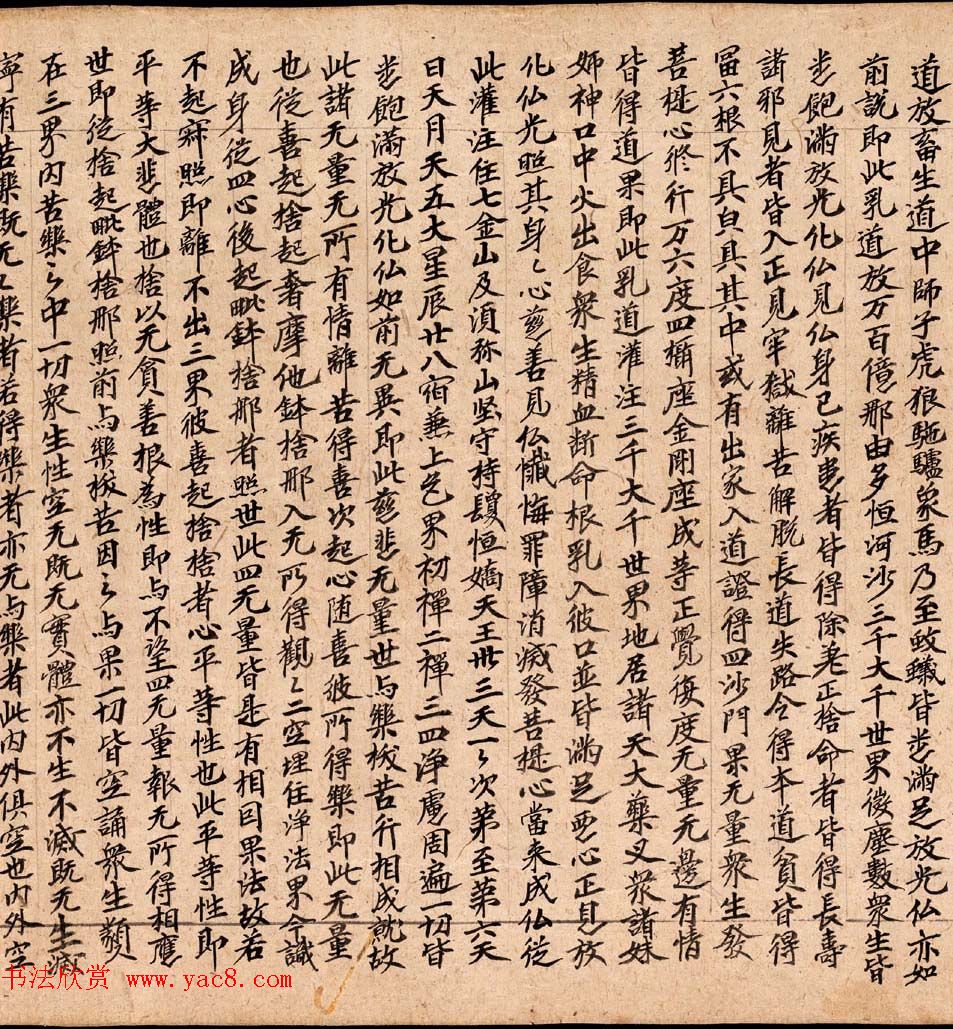 道放畜生道中師子虎狼駞驢象馬乃至蚊蟻皆悉滿足放光仏亦如
前說即此乳道放万百億那由多恒河沙三千大千世界微塵數衆生皆
悉飽滿放光化仏見仏身已疾患者皆得除差正捨命者皆得長壽
諸邪見者皆入正見牢獄難苦解脫長道失路令得本道貧皆得
冨六根不具自具其中或有出家入道證得四沙門果无量衆生發
菩提心終行万六度四攝座金剛座成等正覺復度无量无邊有情
皆得道果即此乳道灌注三千大千世界地居諸天大藥叉衆諸妹
姉神口中火出食衆生精血断命根乳入彼口並皆滿足惡心正見放
化仏光照其身々心慈善見仏懺悔罪障消滅發菩提心當来成仏從
此灌注住七金山及湏弥山堅守持鬘恒嬌天王卅三天一々次第至第六天
日天月天五大星辰廿八宿兼上色界初禪二禪三四浄慮周遍一切皆
悉飽滿放光化仏如前无異即此慈悲无量世与樂拔苦行相成就故
此諸无量无所有情離苦得喜次起心随喜彼所得樂即此无量
也從喜起捨起奢摩他鉢捨那入无所得觀々二空理住浄法界令識
成身從四心後起毗鉢捨那者照世此四无量皆是有相因果法故若
不起寂照即離不出三界彼喜起捨捨者心平等性也此平等性即
平等大悲體也捨以无貪善根為性即与不望四无量報无所得相應
世即從捨起毗鉢捨那照前与樂拔苦因之与果一切皆空誦衆生類
在三界内苦樂之中一切衆生性空无既无實體亦不生不滅既无生滅
寧有苦樂既无々樂者若得樂者亦无与樂者此内外俱空也内外空
书法欣赏 www.yac8.com